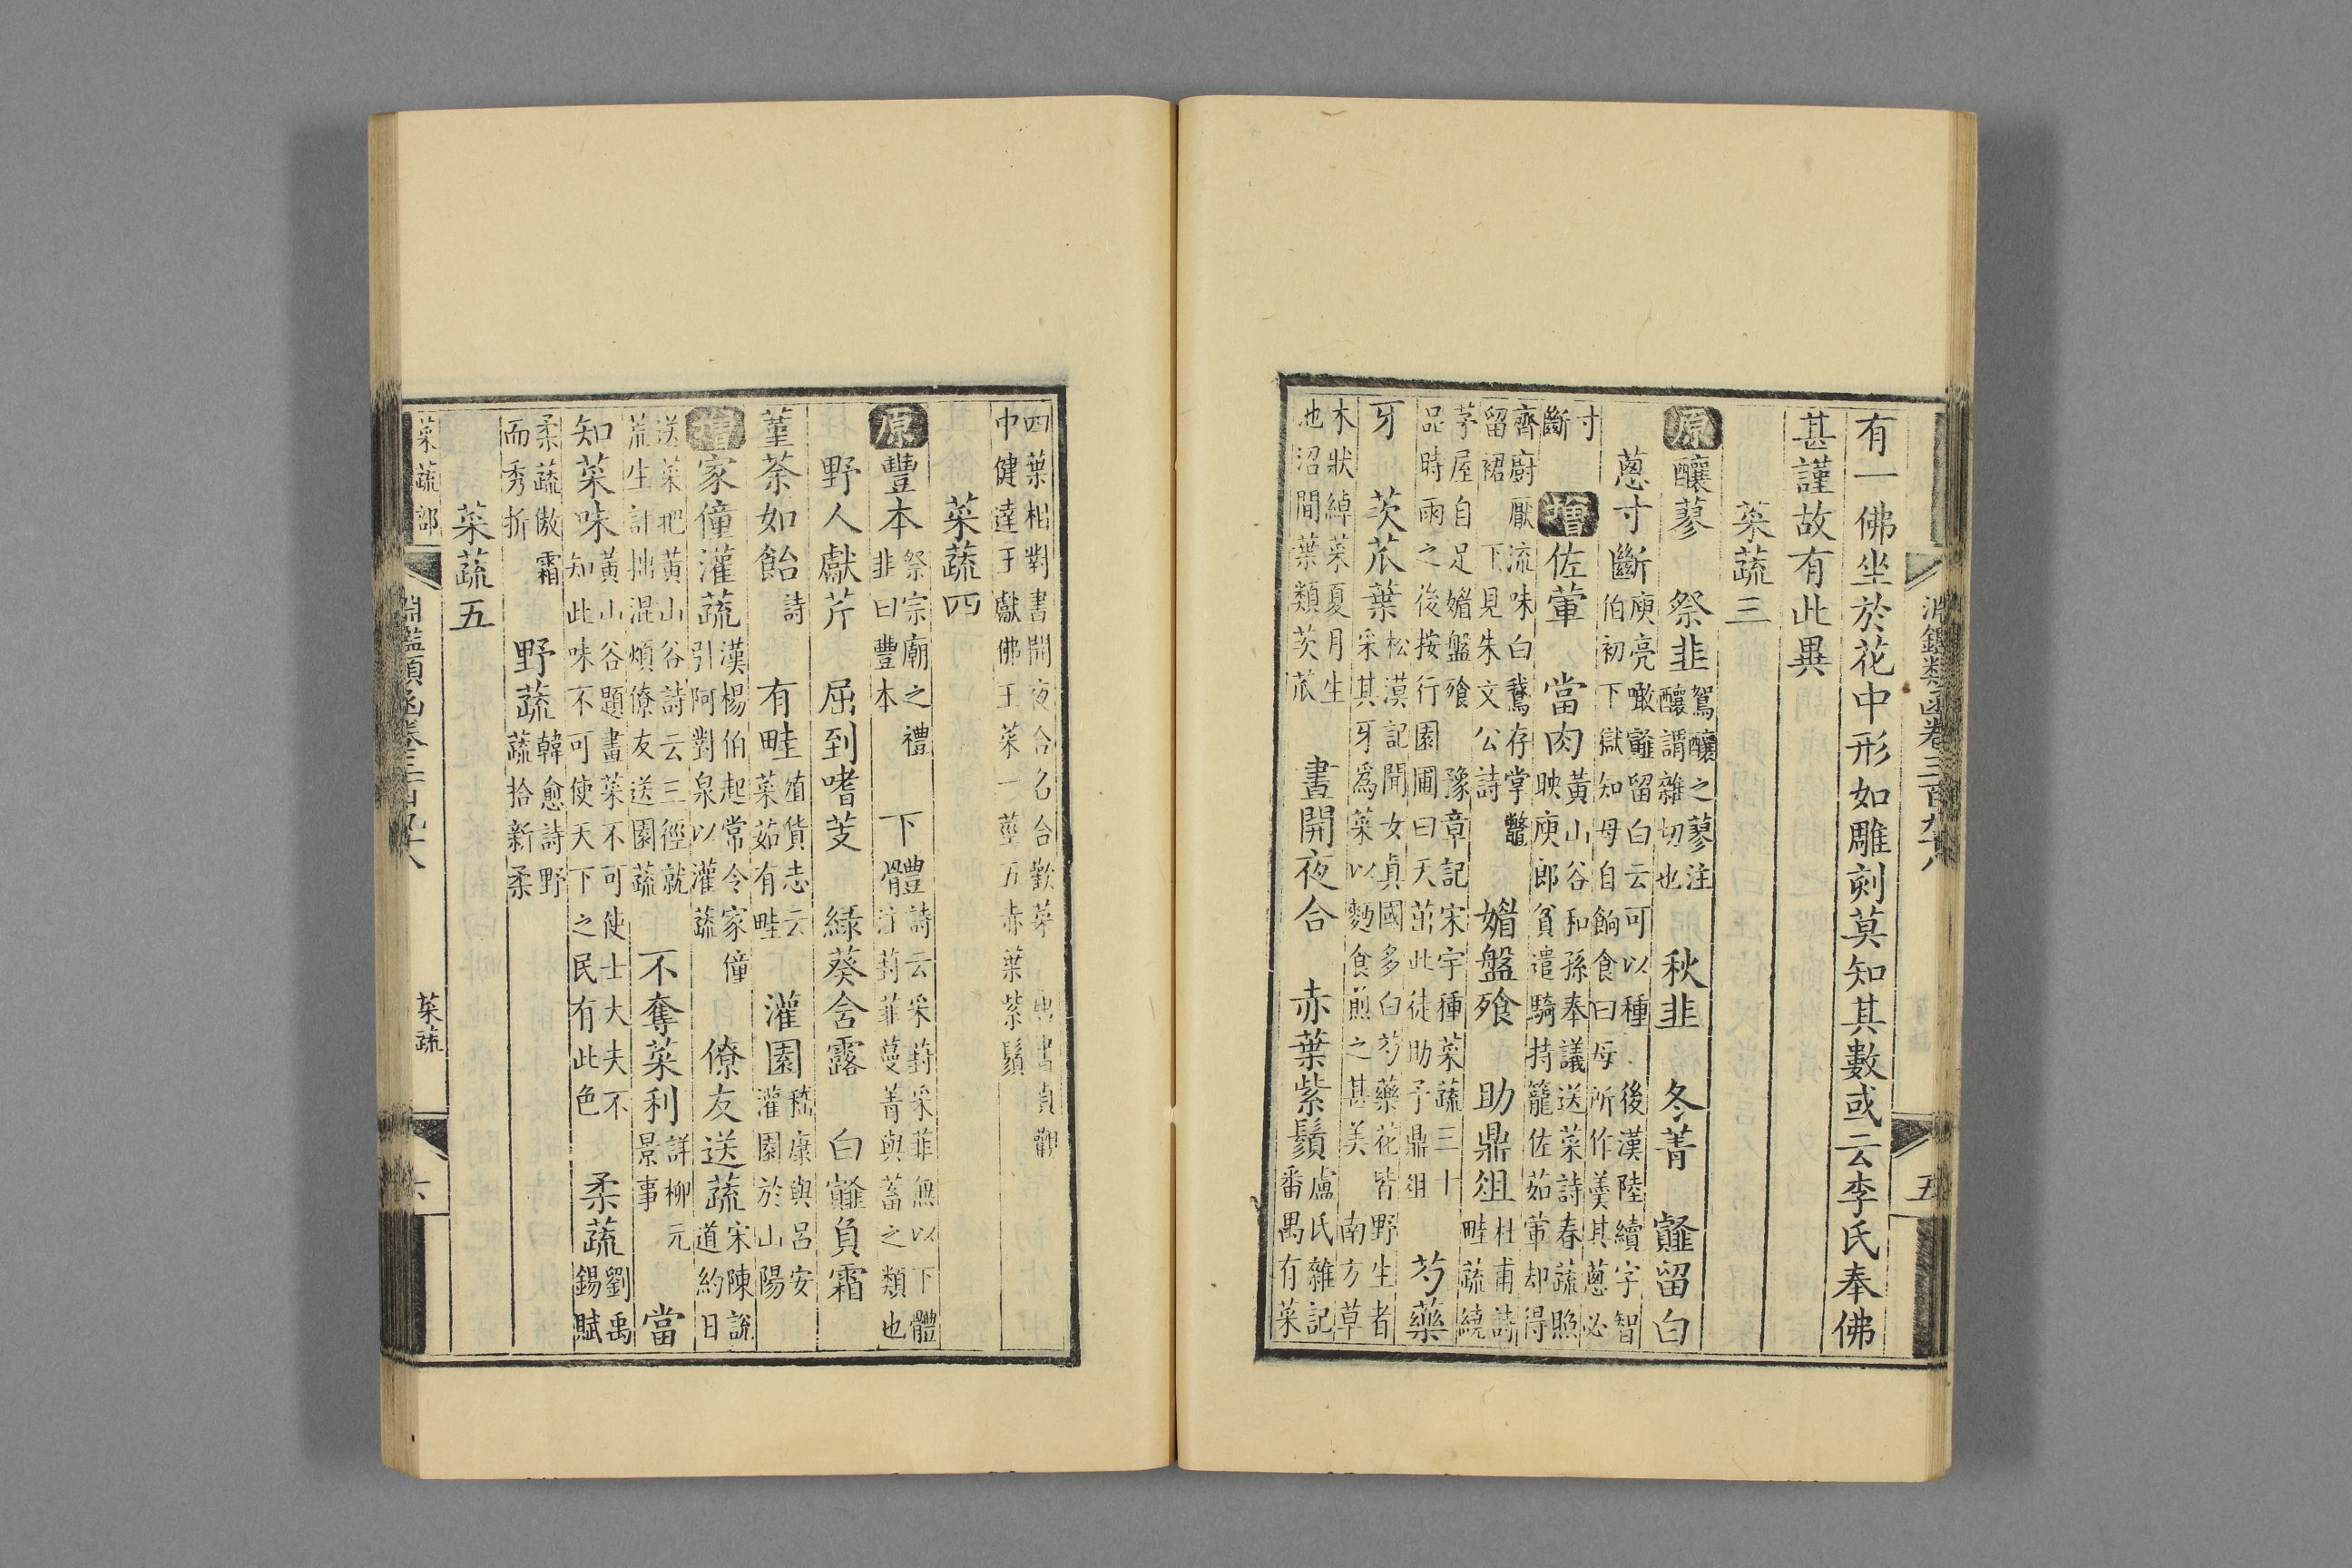 淵鑑類函卷三百九十八
五
有一佛坐於花中形如雕刻莫知其數或云李氏奉佛
甚謹故有此異
菜蔬三
原釀蓼 祭韭 鴽釀之蓼注釀謂雜切也 秋韭 冬菁 虀留白
蔥寸斷 庾亮噉虀留白云可以種 後漢陸續字智伯初下獄知母自餉食曰母所作羹其蔥必
寸斷 增佐葷 當肉 黃山谷和孫奉議送菜詩春蔬照映庾郎貧遣騎持籠佐茹葷却得
齊廚厭流味白鵞存掌鼈留裙 下見朱文公詩 媚盤飱 助鼎俎 杜甫詩畦蔬繞
茅屋自足媚盤飱 豫章記宋宇種菜蔬三十品時雨之後按行園圃曰天茁此徒助予鼎俎 芍藥
牙 茨菰葉 松漠記聞女真國多白芍藥花皆野生者采其牙爲菜以麪食煎之甚美 南方草
木狀綽菜夏月生也沼間葉類茨菰 晝開夜合 赤葉紫鬚 盧氏雜記番禺有菜
四葉相對晝開夜合名合歡菜 唐書貞觀中健達王獻佛王菜一莖五赤葉紫鬚
菜蔬四
原豐本 祭宗廟之禮韭曰豐本 下體 詩云采葑采菲無以下體注葑菲蔓菁與蓄之類也
野人獻芹 屈到嗜芰 綠葵含露 白虀負霜
菫荼如飴 詩 有畦 殖貨志云菜茹有畦 灌園 嵇康與呂安灌園於山陽
增家僮灌蔬 漢楊伯起常令家僮引阿對泉以灌蔬 僚友送蔬 宋陳說道約日
送菜把黃山谷詩云三徑就荒生計拙混煩僚友送園蔬 不奪菜利 詳柳元景事 當
知菜味 黃山谷題畫菜不可使士大夫不知此味不可使天下之民有此色 柔蔬 劉禹錫賦
柔蔬傲霜而秀折 野蔬 韓愈詩野蔬拾新柔
菜蔬五
菜蔬部
淵鑑類函卷三百九十八
菜蔬
六